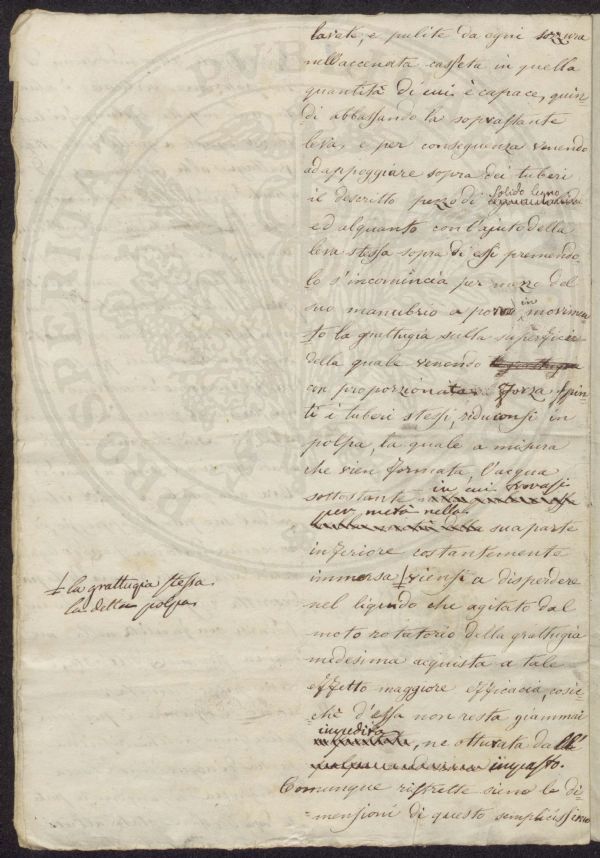 lavate, e pulite da ogni sozzura
nell'accenata cassetta in quella
quantità di cui è capace, quin-
di abbassando la soprastante
leva, e per conseguenza venendo
ad appoggiare sopra dei tuberi
il descritto pezzo di solido legno
ed alquanto con l'ajuto della
leva stessa sopra di essi premendo-
lo s'incomincia per mezzo del
suo manubrio a porre in movimen-
to la grattugia sulla superficie
della quale venendo
con proporzionata forza spin-
ti i tuberi stessi, riduconsi in
polpa, la quale a misura
che vien formata l'acqua
sottostante in cui trovasi
per metà nella sua parte
inferiore costantemente
immersa viensi a disperdere
nel liquido che agitato dal
moto rotatorio della grattugia
medesima acquista a tale
effetto maggiore efficacia, cosic-
chè d'essa non resta giammai
impedita, ne otturata dall'
impasto.
Comunque ristrette sieno le di-
mensioni di questo semplicissimo
la grattugia stessa
la detta polpa
PROSPERITATI PUBLICAE